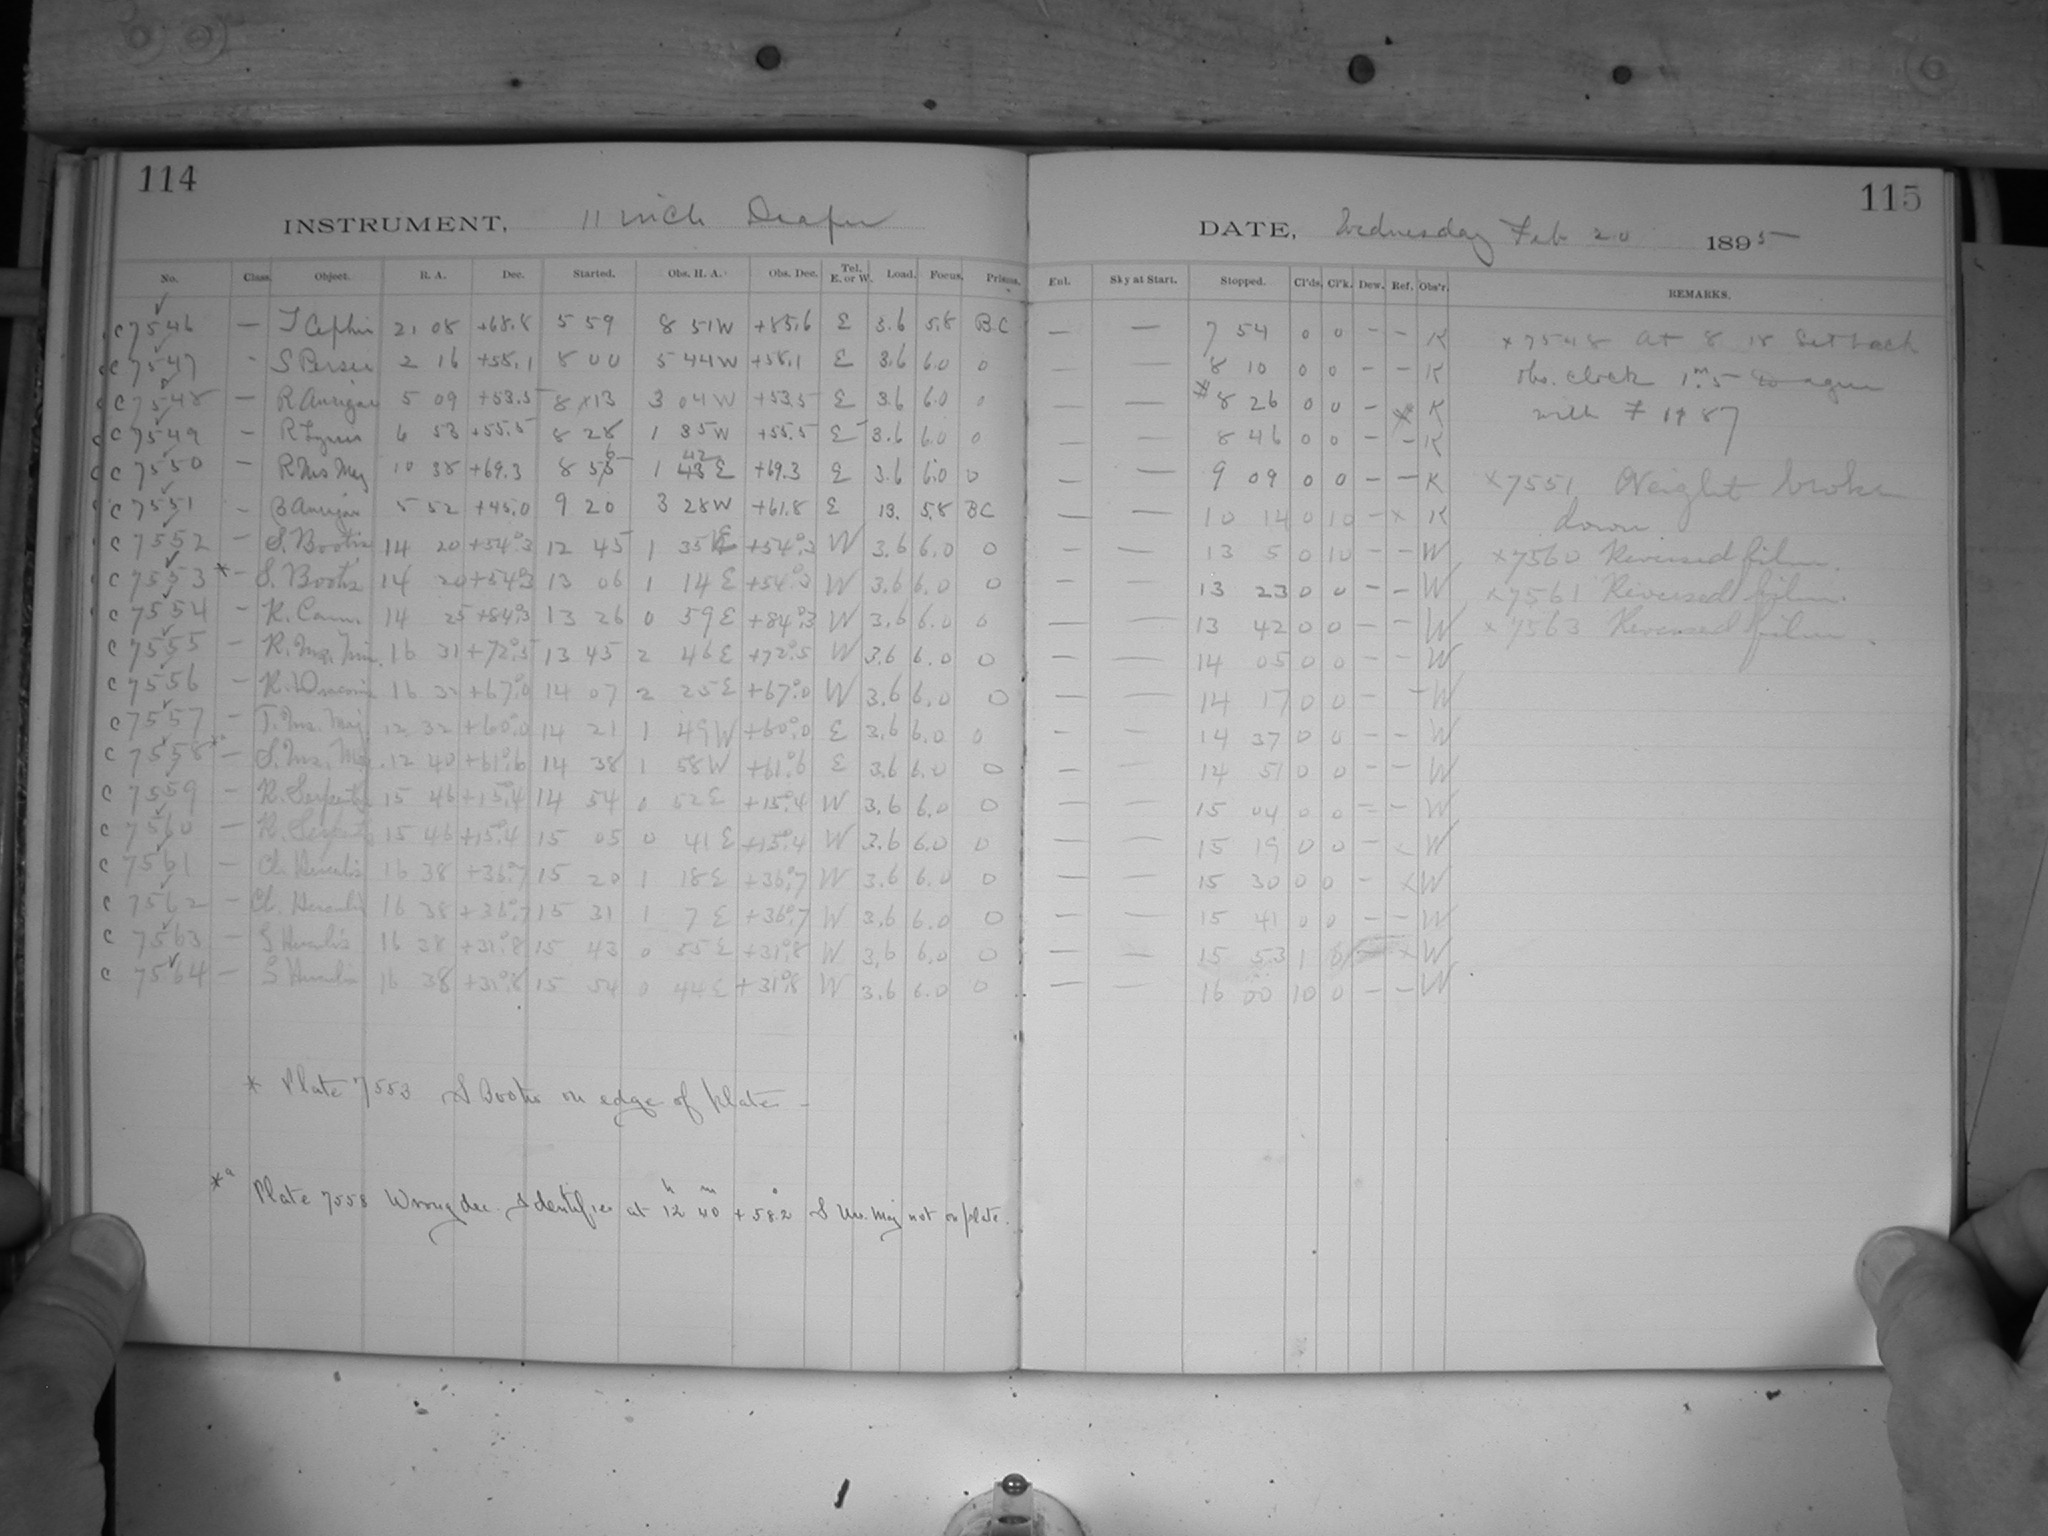 114
INSTRUMENT, 11 inch Draper
No. Class. Object. R. A. Dec. Started. Obs. H. A. Obs. Dec. Tel. E. or W. Load. Focus. Prisms.
C 7546 — T Cephei 21 08 +68.8 5 59 8 51 W +85.6 E 3.6 5.8 BC
C 7547 - S Persei 2 16 +58.1 8 00 5 44 W +58.1 E 3.6 6.0 0
C 7548 — R Aurigae 5 09 +53.5 8 13 3 04 W +53.5 E 3.6 6.0 0
C 7549 — R Lyncis 6 53 +55.5 8 28 1 35 W +55.5 E 3.6 6.0 0
C 7550 — R Urs Maj 10 38 +69.3 8 56 1 42 E +69.3 E 3.6 6.0 0
C 7551 — B Aurigae 5 52 +45.0 9 20 3 28 W +61.8 E 13. 5.8 BC
C 7552 — S. Bootis 14 20 +54°.3 12 45 1 35 E +54°.3 W 3.6 6.0 0
C 7553 *- S. Bootis 14 20 +54°.3 13 06 1 14 E +54°.3 W 3.6 6.0 0
C 7554 — R. Cam. 14 25 +84°.3 13 26 0 59 E +84°.3 W 3.6 6.0 0
C 7555 — R. Urs. Min. 16 31 +72°.5 13 45 2 46 E +72°.5 W 3.6 6.0 0
C 7556 — R. Draconis 16 32 +67°.0 14 07 2 25 E +67°.0 W 3.6 6.0 0
C 7557 — T. Urs. Maj. 12 32 +60°.0 14 21 1 49 W +60°.0 E 3.6 6.0 0
C 7558 *a — S. Urs. Maj. 12 40 +61°.6 14 38 1 58 W +61°.6 E 3.6 6.0 0
C 7559 — R. Serpentis 15 46 +15°.4 14 54 0 52 E +15°.4 W 3.6 6.0 0
C 7560 — R. Serpentis 15 46 +15°.4 15 05 0 41 E +15°.4 W 3.6 6.0 0
C 7561 — Herculis 16 38 +36°.7 15 20 1 18 E +36°.7 W 3.6 6.0 0
C 7562 — Herculis 16 38 +36°.7 15 31 1 7 E +36°.7 W 3.6 6.0 0
C 7563 — S Herculis 16 38 +31°.8 15 43 0 55 E +31°.8 W 3.6 6.0 0
C 7564 — S Herculis 16 38 +31°.8 15 54 0 44 E +31°.8 W 3.6 6.0 0
* Plate 7553 S Bootis on edge of plate —
*a Plate 7558 Wrong dec. Identifies at 12h 40m + 58°.2 S Urs. Maj not on plate.
115
DATE, Wednesday Feb 20 1895
Enl. Sky at Start. Stopped. Cl'ds. Cl'k. Dew. Ref. Obs'r. REMARKS.
— — 7 54 0 0 - - K x7548 At 8 18 Set back
— — 8 10 0 0 - - K obs. clock 1m.5 to agree
— — *8 26 0 0 - x K with F 1987
— — 8 46 0 0 - - K
— — 9 09 0 0 - - K x7551 Weight broken
— — 10 14 0 10 - x K down
— — 13 5 0 10 - - W x7560 Reversed film.
— — 13 23 0 0 - - W x7561 Reversed film.
— — 13 42 0 0 - - W x7563 Reversed film.
— — 14 05 0 0 - - W
— — 14 17 0 0 - W
— — 14 37 0 0 - - W
— — 14 51 0 0 - - W
— — 15 04 0 0 - - W
— — 15 19 0 0 - x W
— — 15 30 0 0 - x W
— — 15 41 0 0 - - W
— — 15 53 1 x W
— — 16 00 10 0 - - W